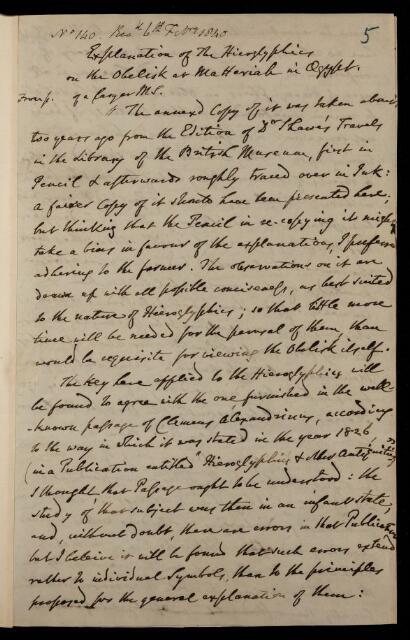 No 140. Read 6th Feb 1840. 5
Explanation of the Hieroglyphics
on the Obelisk at Matteriah in Egypt.
From p. of a larger MS.
The annexed Copy of it was taken about
two years ago from the Edition of Dr Shaw's Travels
in the Library of the British Museum, first in
Pencil & afterwards roughly traced over in Ink:
a fairer Copy of it should have been presented here;
but thinking that the Pencil in re-copying it might
take a bias in favour of the explanations, I preferred
adhering to the former. The observations on it are
drawn up with all possible conciseness, as best suited
to the nature of Hieroglyphics; so that little more
time will be needed for the perusal of them, than
would be requisite for viewing the Obelisk itself.
The Key here applied to the Hieroglyphics will
be found to agree with the one furnished in the well
-known passage of Clemens Alexandrinus, according
to the way in which it was stated in the year 1826
(in a Publication entitled "Hieroglyphics & other Antiquities")
I thought, that Passage ought to be understood: the
study of that subject was then in an infant state,
and, without doubt, there are errors in that Publication
but I believe it will be found that such errors extend
rather to individual Symbols, than to the principles
proposed for the general explanation of them: